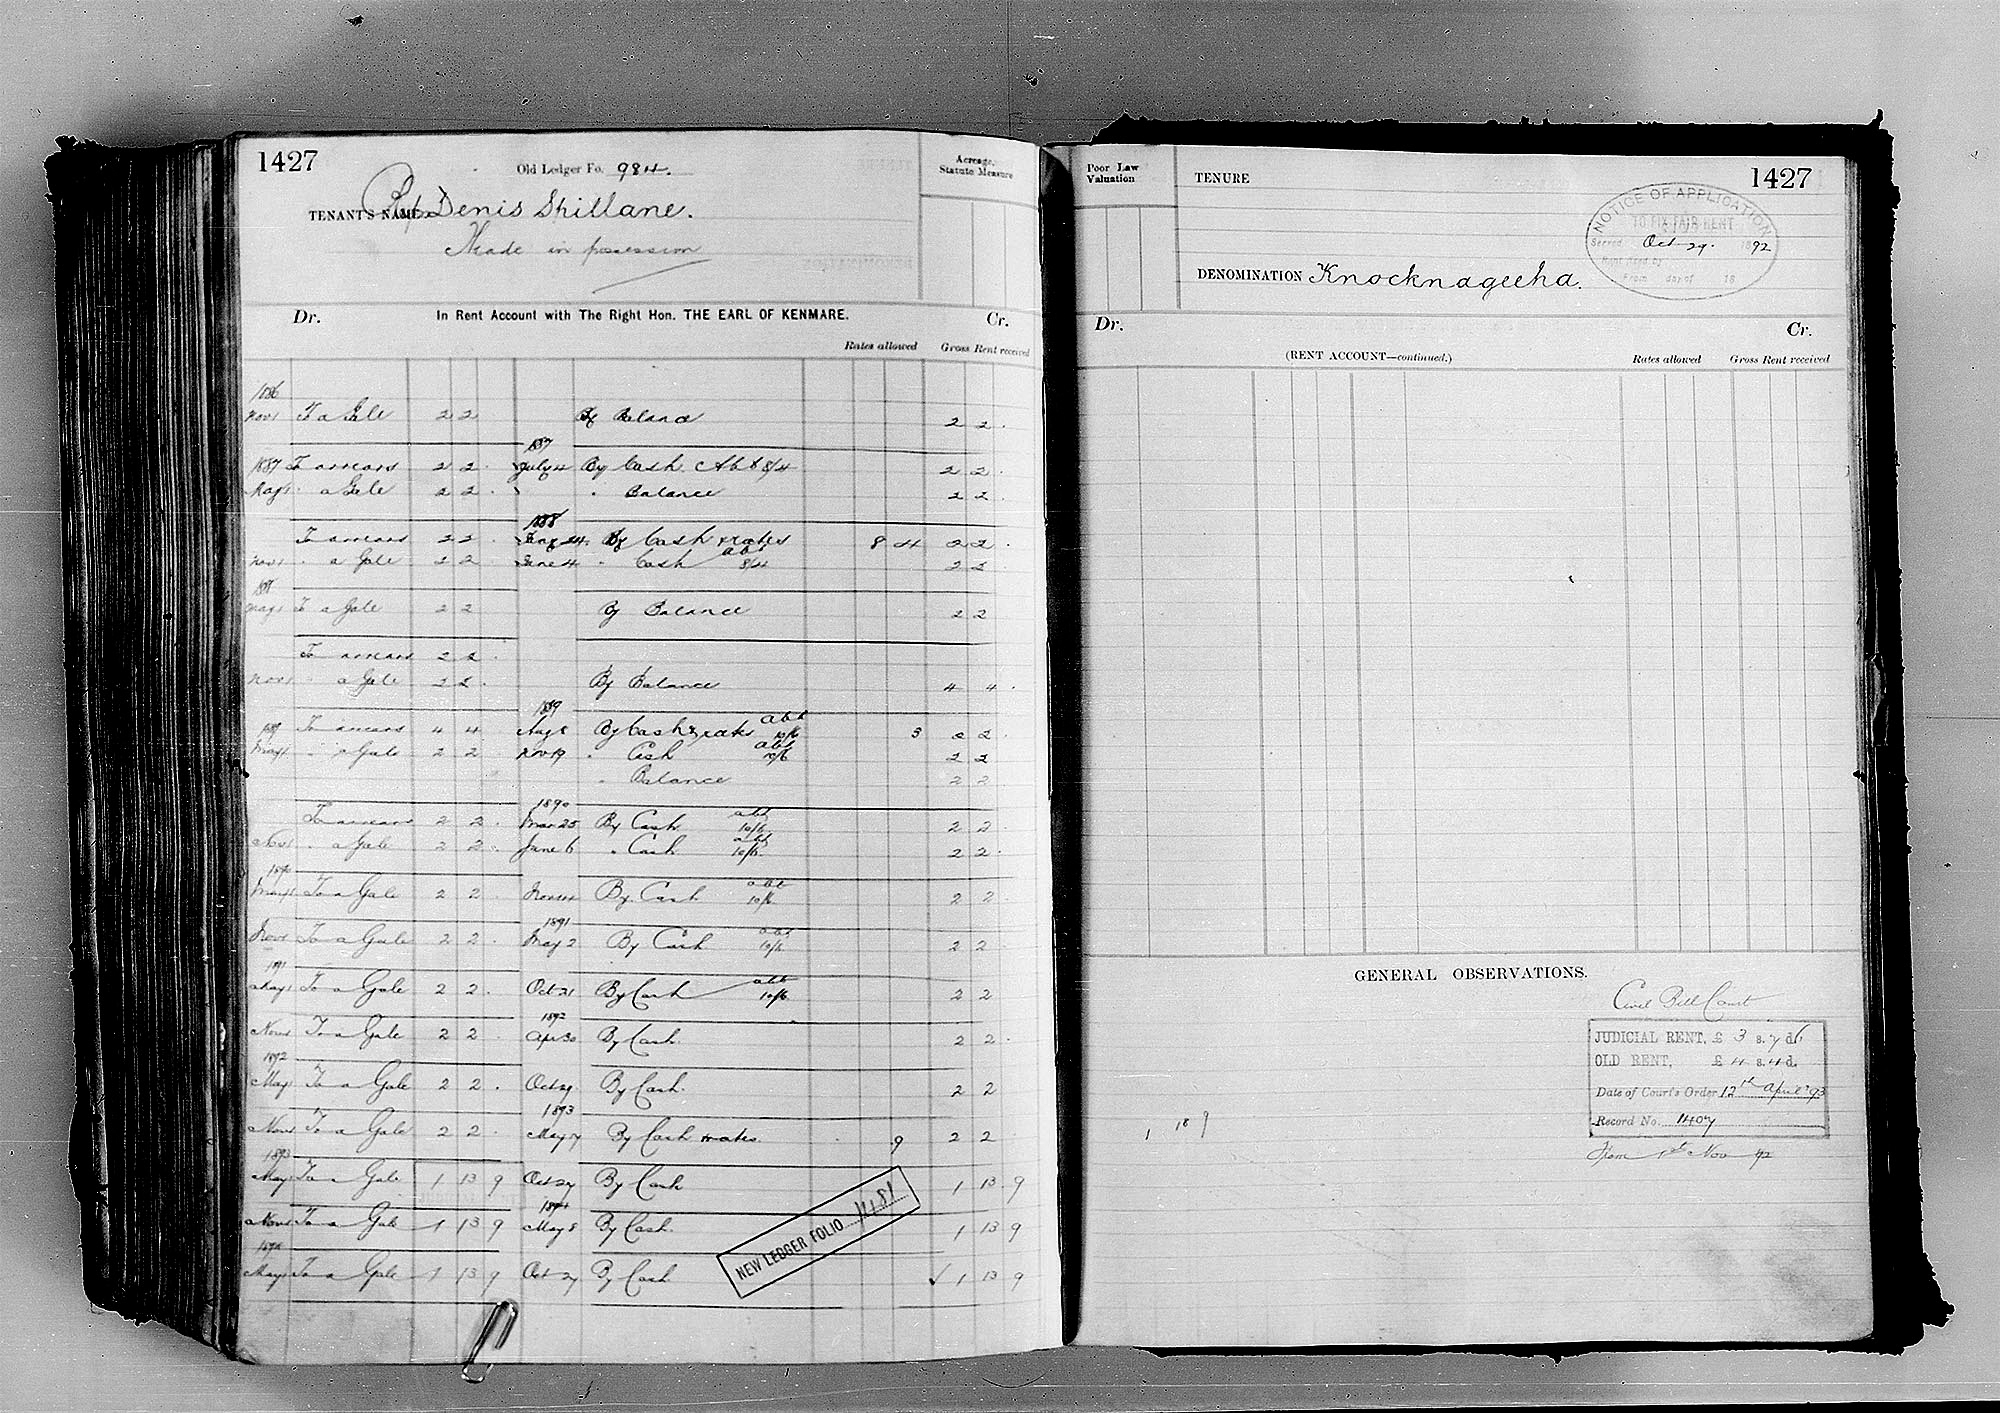 1427
Old Ledger Fo. 984.
Acreage, Statute Measure
TENANT'S NAME, Rep Denis Shillane.
Meade in possession
Dr. In Rent Account with The Right Hon. THE EARL OF KENMARE. Cr.
Rates allowed Gross Rent received
1886
Nov 1 To a Gale 2 2 By Balance 2 2
1887
1887 To arrears 2 2 July 4 By Cash Abt 8/4 2 2
May 1 " a Gale 2 2 " Balance 2 2
1888
To arrears 2 2 24 By Cash & rates 8 4 2 2
Nov 1 " a Gale 2 2 June 4 " Cash abt 8/4 2 2
1888
May 1 To a Gale 2 2 By Balance 2 2
To arrears 2 2
Nov 1 " a Gale 2 2 By Balance 4 4
1889
1889 To arrears 4 4 Aug 8 By Cash & rates abt 10/6 3 2 2
May 1 " a Gale 2 2 Nov 19 " Cash abt 10/6 2 2
" Balance 2 2
1890
To arrears 2 2 Mar 25 By Cash abt 10/6 2 2
Nov 1 " a Gale 2 2 June 6 " Cash abt 10/6 2 2
1890
May 1 To a Gale 2 2 Nov 14 By Cash abt 10/6 2 2
1891
Nov 1 To a Gale 2 2 May 2 By Cash abt 10/6 2 2
1891
May 1 To a Gale 2 2 Oct 21 By Cash abt 10/6 2 2
1892
Nov 1 To a Gale 2 2 Apr 30 By Cash 2 2
1892
May 1 To a Gale 2 2 Oct 29 By Cash 2 2
1893
Nov 1 To a Gale 2 2 May 17 By Cash & rates 9 2 2
1893
May 1 To a Gale 1 13 9 Oct 27 By Cash 1 13 9
1894
Nov 1 To a Gale 1 13 9 May 8 By Cash 1 13 9
1894
May 1 To a Gale 1 13 9 Oct 27 By Cash 1 13 9
NEW LEDGER FOLIO 1481
Poor Law Valuation
TENURE
1427
NOTICE OF APPLICATION
TO FIX FAIR RENT
Served Oct 29. 1892
Rent fixed by
From day of 18
DENOMINATION Knocknageeha.
Dr. Cr.
(RENT ACCOUNT—continued.) Rates allowed Gross Rent received
GENERAL OBSERVATIONS.
Civil Bill Court
JUDICIAL RENT, £ 3 s. 7 d. 6
OLD RENT, £ 4 s. 4 d.
Date of Court's Order 12th April '93
Record No. 1407
From 1st Nov 92
1 18 9